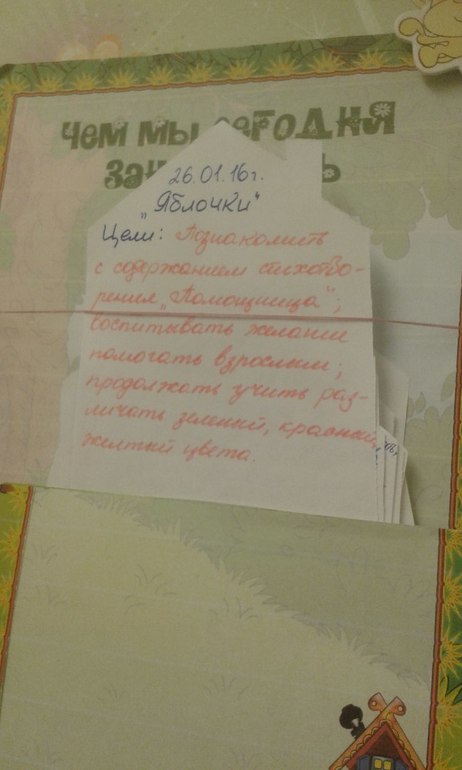 ЧЕМ МЫ СЕГОДНЯ
ЗАН
26.01.16г.
„Яблочки"
Цели: Познакомить
с содержанием стихотво-
рения „Помощница";
воспитывать желание
помогать взрослым;
продолжать учить раз-
личать зеленый, красный,
желтый цвета.